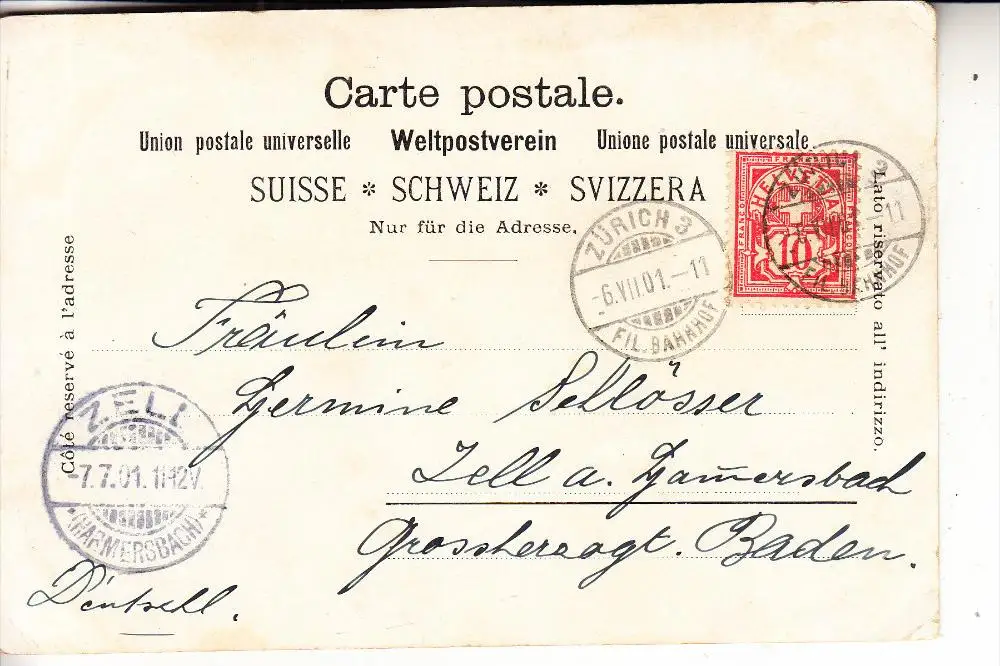 Carte postale.
Union postale universelle Weltpostverein Unione postale universale.
SUISSE * SCHWEIZ * SVIZZERA
Nur für die Adresse.
Côté réservé à l'adresse
Lato riservato all' indirizzo.
FRANCO
HELVETIA
FRANCO
10
ZÜRICH 3
-6.VII.01.-11
FIL. BAHNHOF
3
-11
FIL. BAHNHOF
Fräulein
Hermine Schlösser
Zell a. Hamersbach
Grossherzogt. Baden.
ZELL
-7.7.01.11-12V.
*(HARMERSBACH)*
Deutschl.